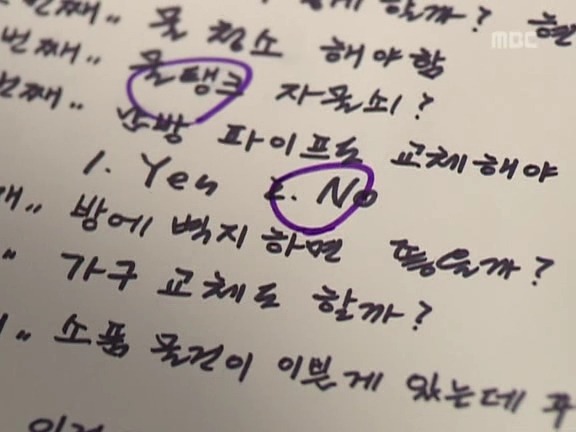 할까? 현
MBC
번째.. 물 청소 해야함
번째.. 물탱크 자물쇠?
번째.. 난방 파이프도 교체해야
1. Yen 2. No
방에 벽지 하면 될까?
" 가구 교체도 할까?
.. 소품 물건이 이쁜게 있는데